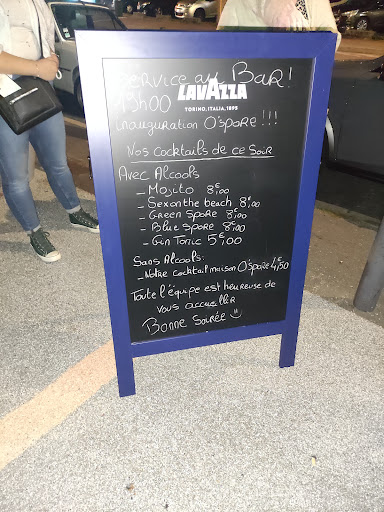 Service au Bar!
LAVAZZA
TORINO, ITALIA, 1895
19h00
inauguration O'spore !!!
Nos cocktails de ce soir
Avec Alcools
- Mojito 8€,00
- Sex on the beach 8€,00
- Green Spore 8€,00
- Blue Spore 8€,00
- Gin Tonic 5€,00
Sans Alcools:
- Notre cocktail maison O'spore 4€,50
Toute l'équipe est heureuse de
vous accueillir
Bonne soirée